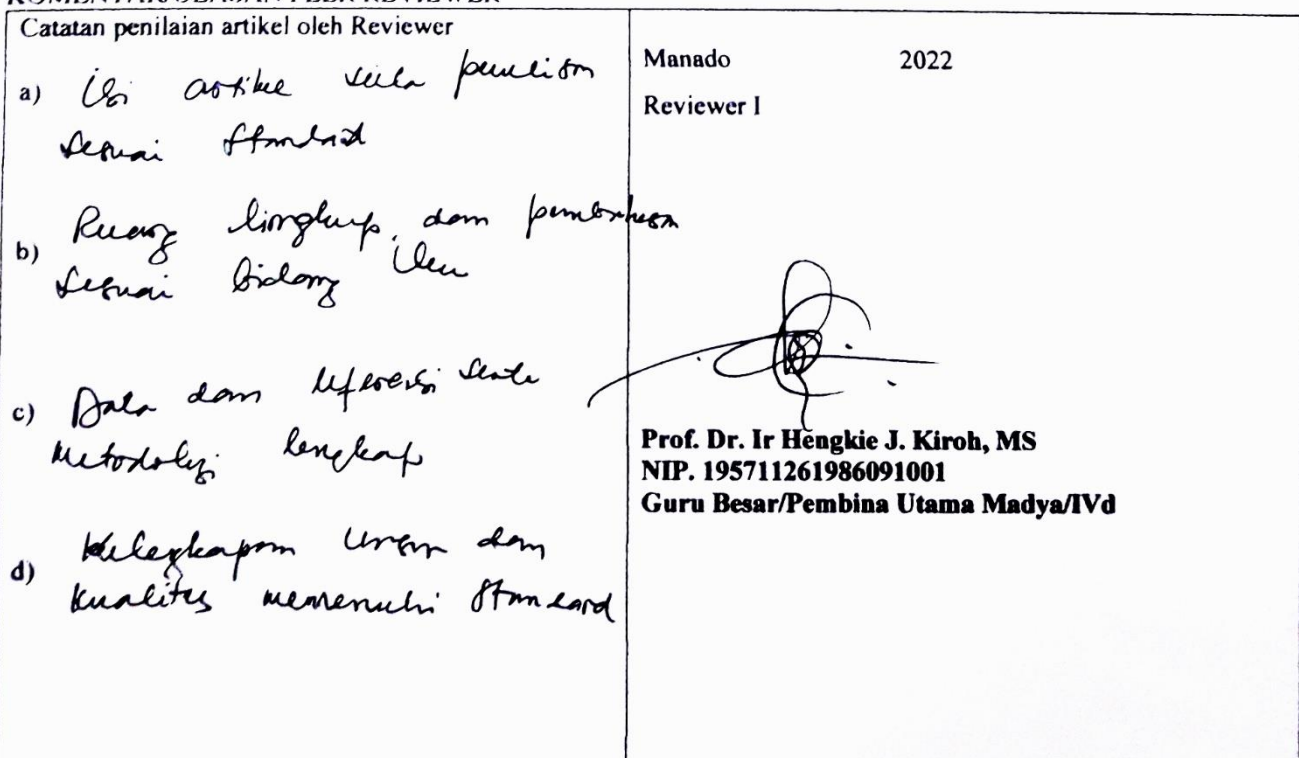 Catatan penilaian artikel oleh Reviewer
a) Isi artikel penulisan
sesuai Standard
b) Ruang lingkup dan pembahasan
sesuai bidang ilmu
c) Data dan referensi serta
metodologi lengkap
d) Kelengkapan unsur dan
kualitas memenuhi Standard
Manado 2022
Reviewer I
Prof. Dr. Ir Hengkie J. Kiroh, MS
NIP. 195711261986091001
Guru Besar/Pembina Utama Madya/IVd